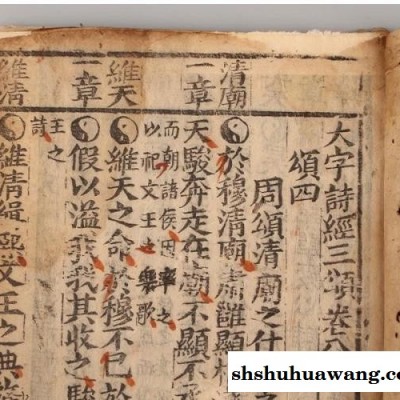 大字詩經三頌卷八
頌四
周頌清廟之什
清廟
一章
於穆清廟肅雝顯相
天駿奔走在廟不顯不
而朝諸侯因率之
以祀文王之樂歌
維天
一章
維天之命於穆不已於
假以溢我我其收之駿
王之
詩
維清
維清緝熙文王之典
shshuhuawang.com